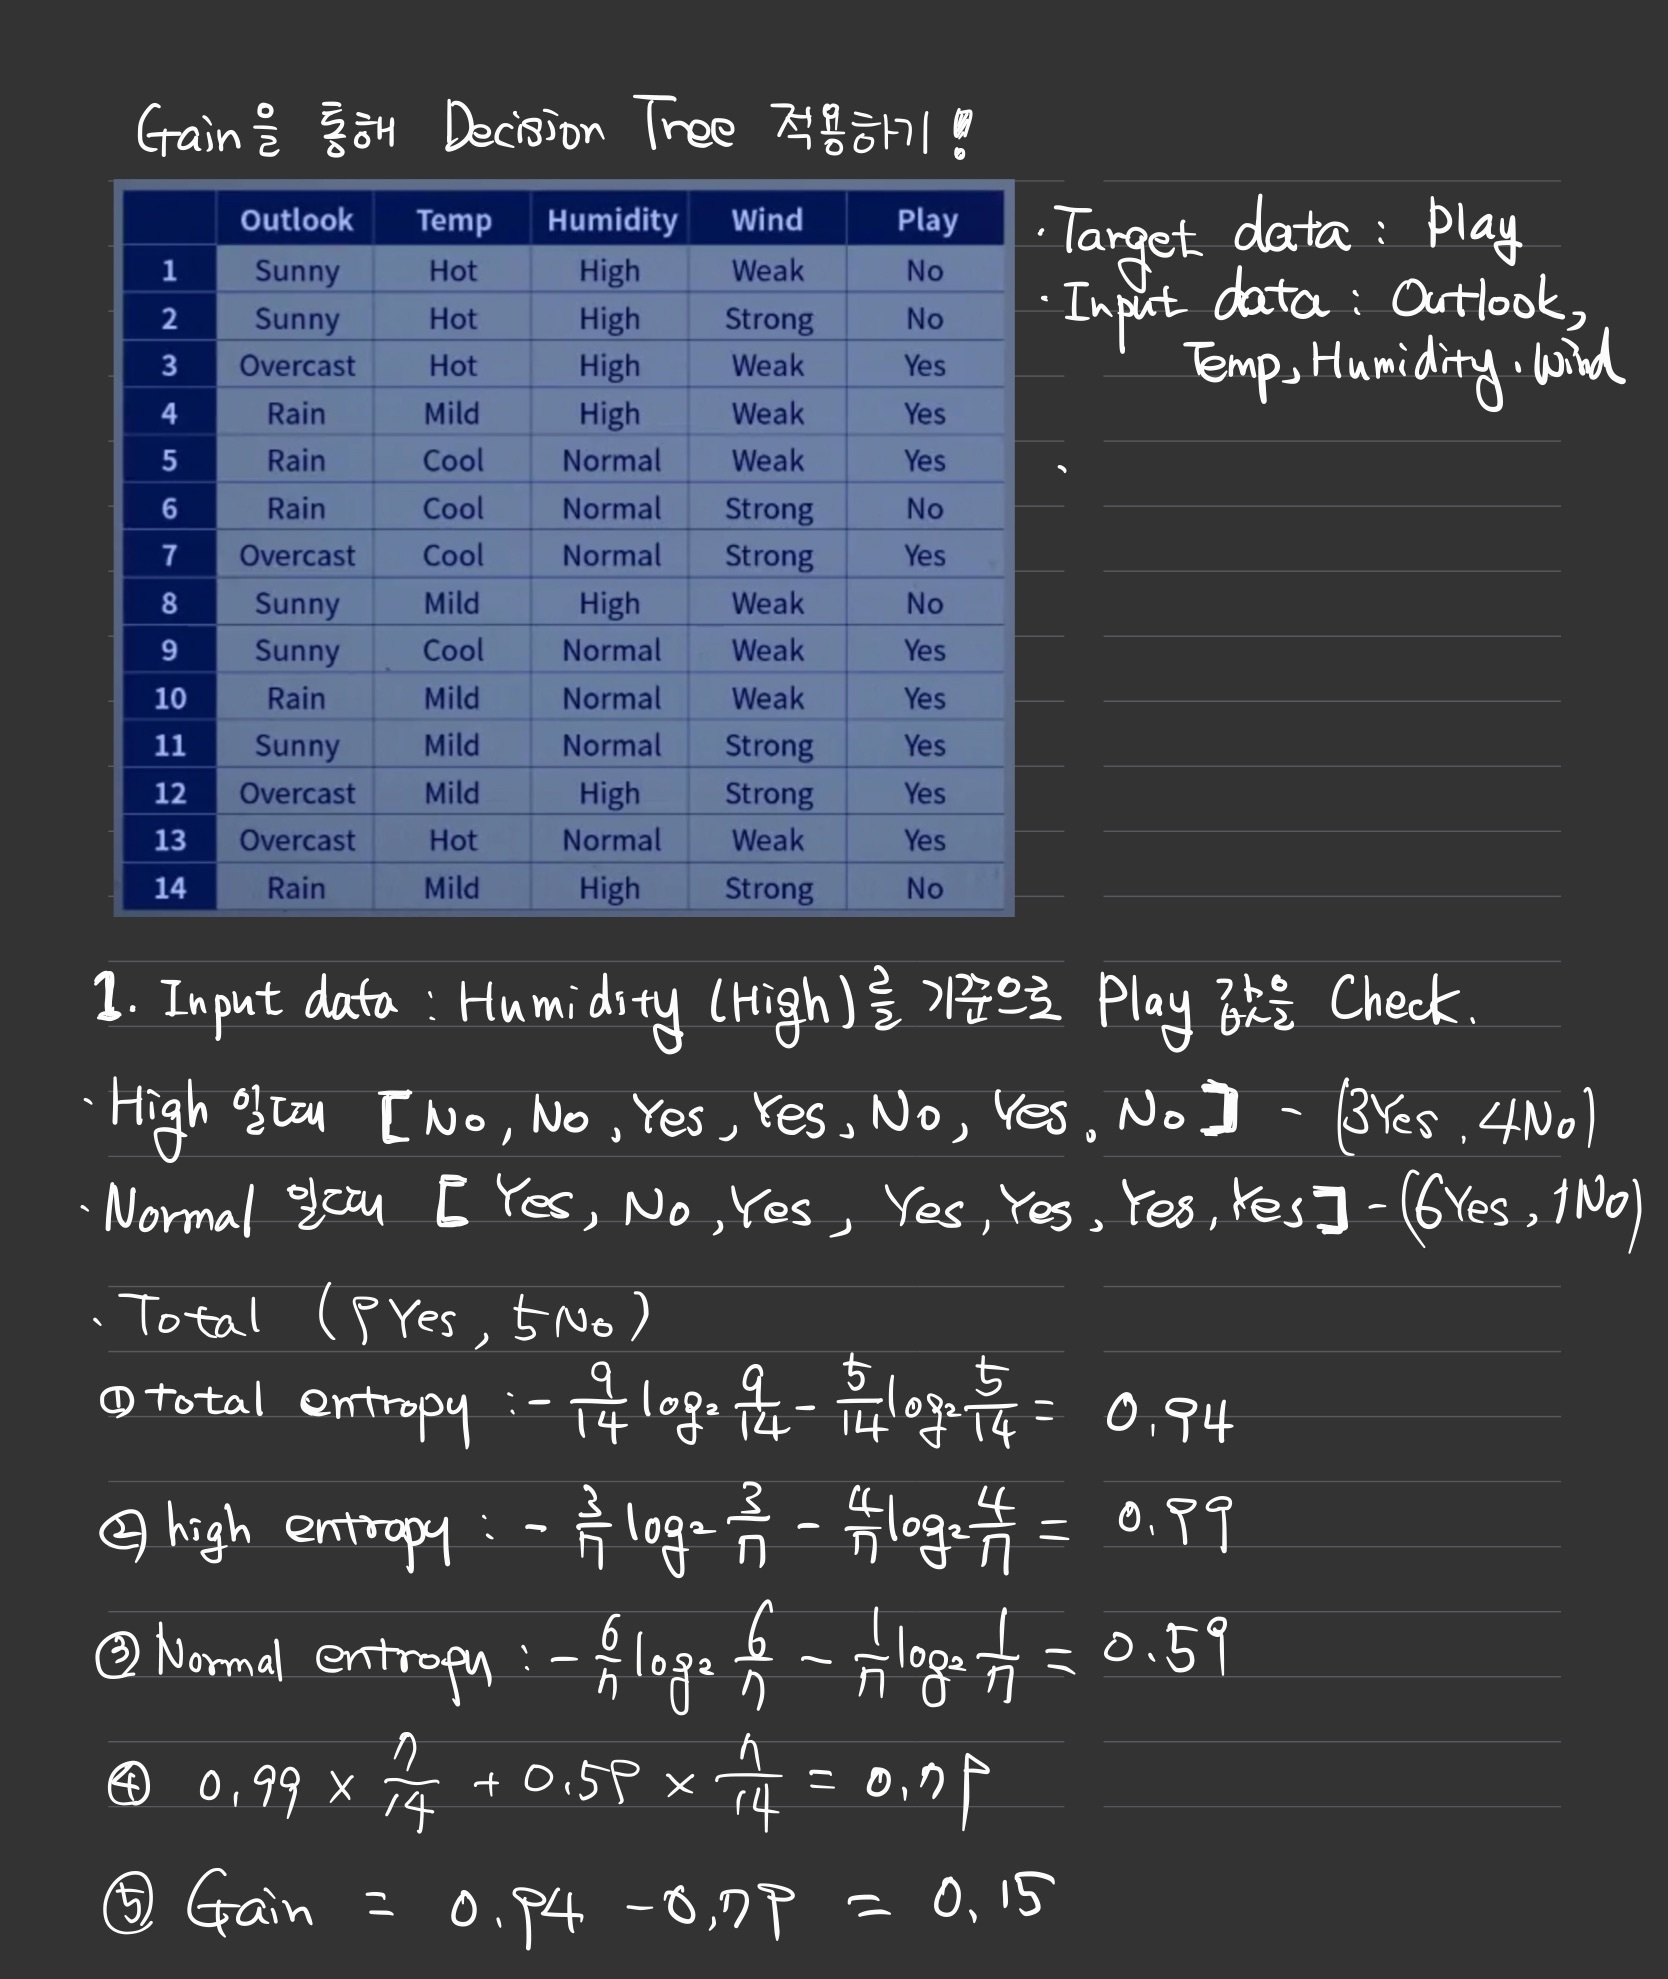 Gain을 통해 Decision Tree 적용하기!
Outlook Temp Humidity Wind Play
1 Sunny Hot High Weak No
2 Sunny Hot High Strong No
3 Overcast Hot High Weak Yes
4 Rain Mild High Weak Yes
5 Rain Cool Normal Weak Yes
6 Rain Cool Normal Strong No
7 Overcast Cool Normal Strong Yes
8 Sunny Mild High Weak No
9 Sunny Cool Normal Weak Yes
10 Rain Mild Normal Weak Yes
11 Sunny Mild Normal Strong Yes
12 Overcast Mild High Strong Yes
13 Overcast Hot Normal Weak Yes
14 Rain Mild High Strong No
· Target data : Play
· Input data : Outlook,
Temp, Humidity, Wind
1. Input data : Humidity (High)를 기준으로 Play 값을 Check.
· High 일때 [No, No, Yes, Yes, No, Yes, No] - (3Yes, 4No)
· Normal 일때 [Yes, No, Yes, Yes, Yes, Yes, Yes] - (6Yes, 1No)
· Total (9Yes, 5No)
① total entropy : - 9/14 log₂ 9/14 - 5/14 log₂ 5/14 = 0.94
② high entropy : - 3/7 log₂ 3/7 - 4/7 log₂ 4/7 = 0.99
③ Normal entropy : - 6/7 log₂ 6/7 - 1/7 log₂ 1/7 = 0.59
④ 0.99 × 7/14 + 0.59 × 7/14 = 0.79
⑤ Gain = 0.94 - 0.79 = 0.15